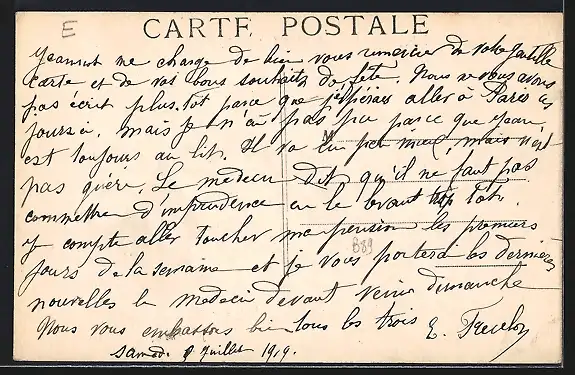 E
CARTE POSTALE
Jeannot me charge de bien vous remercier de votre gentille
carte et de vos bons souhaits de fête. Nous ne vous avons
pas écrit plus tôt parce que j'espérais aller à Paris ces
jours ci, mais je n'ai pas pu parce que Jean
est toujours au lit. Il va un peu mieux mais n'est
pas guéri. Le medecin dit qu'il ne faut pas
commettre d'imprudence en le levant trop tôt.
J'y compte aller toucher ma pension les premiers
jours de la semaine et je vous porterai les dernières
nouvelles le medecin devant venir dimanche
Nous vous embrassons bien tous les trois E.
Samedi Juillet 1919.
B89
M